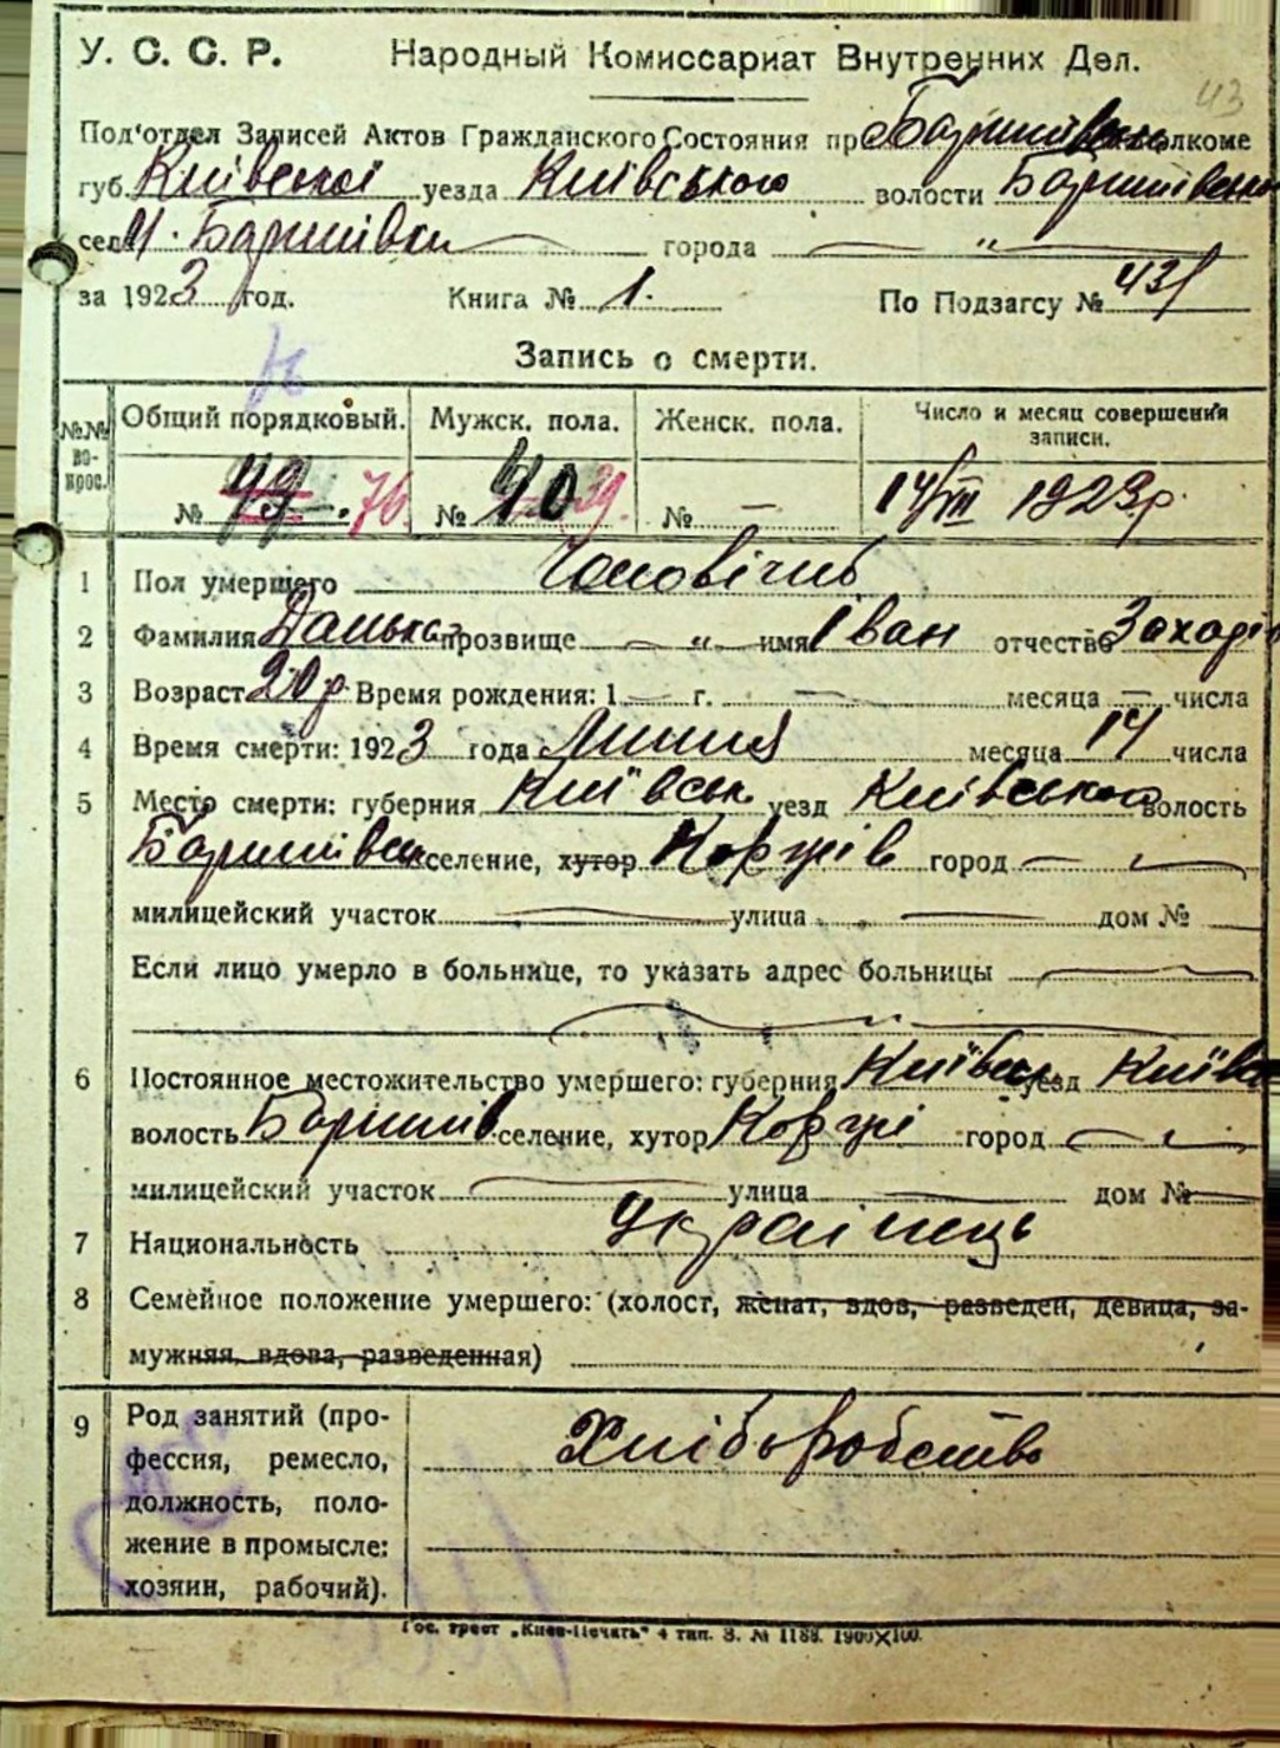 43
У. С. С. Р. Народный Комиссариат Внутренних Дел.
Под'отдел Записей Актов Гражданского Состояния при Баришівськ. исполкоме
губ. Київської уезда Київського волости Баришівської
село М. Баришівки города — " —
за 1923 год. Книга № 1. По Подзагсу № 43
Запись о смерти.
№№ вопрос. Общий порядковый. Мужск. пола. Женск. пола. Число и месяц совершения записи.
№ 49 76 № 40 39. № — 14/VII 1923р.
1 Пол умершего Чоловічий
2 Фамилия Данько прозвище — " — имя Іван отчество
3 Возраст 20 р. Время рождения: 1 — г. — месяца — числа
4 Время смерти: 1923 года Липня месяца 14 числа
5 Место смерти: губерния Київськ. уезд Київського волость
Баришівськ селение, хутор Коржів город —
милицейский участок — улица — дом №
Если лицо умерло в больнице, то указать адрес больницы —
6 Постоянное местожительство умершего: губерния Київськ уезд Київс
волость Баришів селение, хутор Коржі город —
милицейский участок — улица — дом № —
7 Национальность Українець
8 Семейное положение умершего: (холост, женат, вдов, разведен, девица, за-
мужняя, вдова, разведенная)
9 Род занятий (про- Хліборобство
фессия, ремесло,
должность, поло-
жение в промысле:
хозяин, рабочий).
Гос. трест „Киев-Печать" 4 тип. З. № 1188. 1900×100.